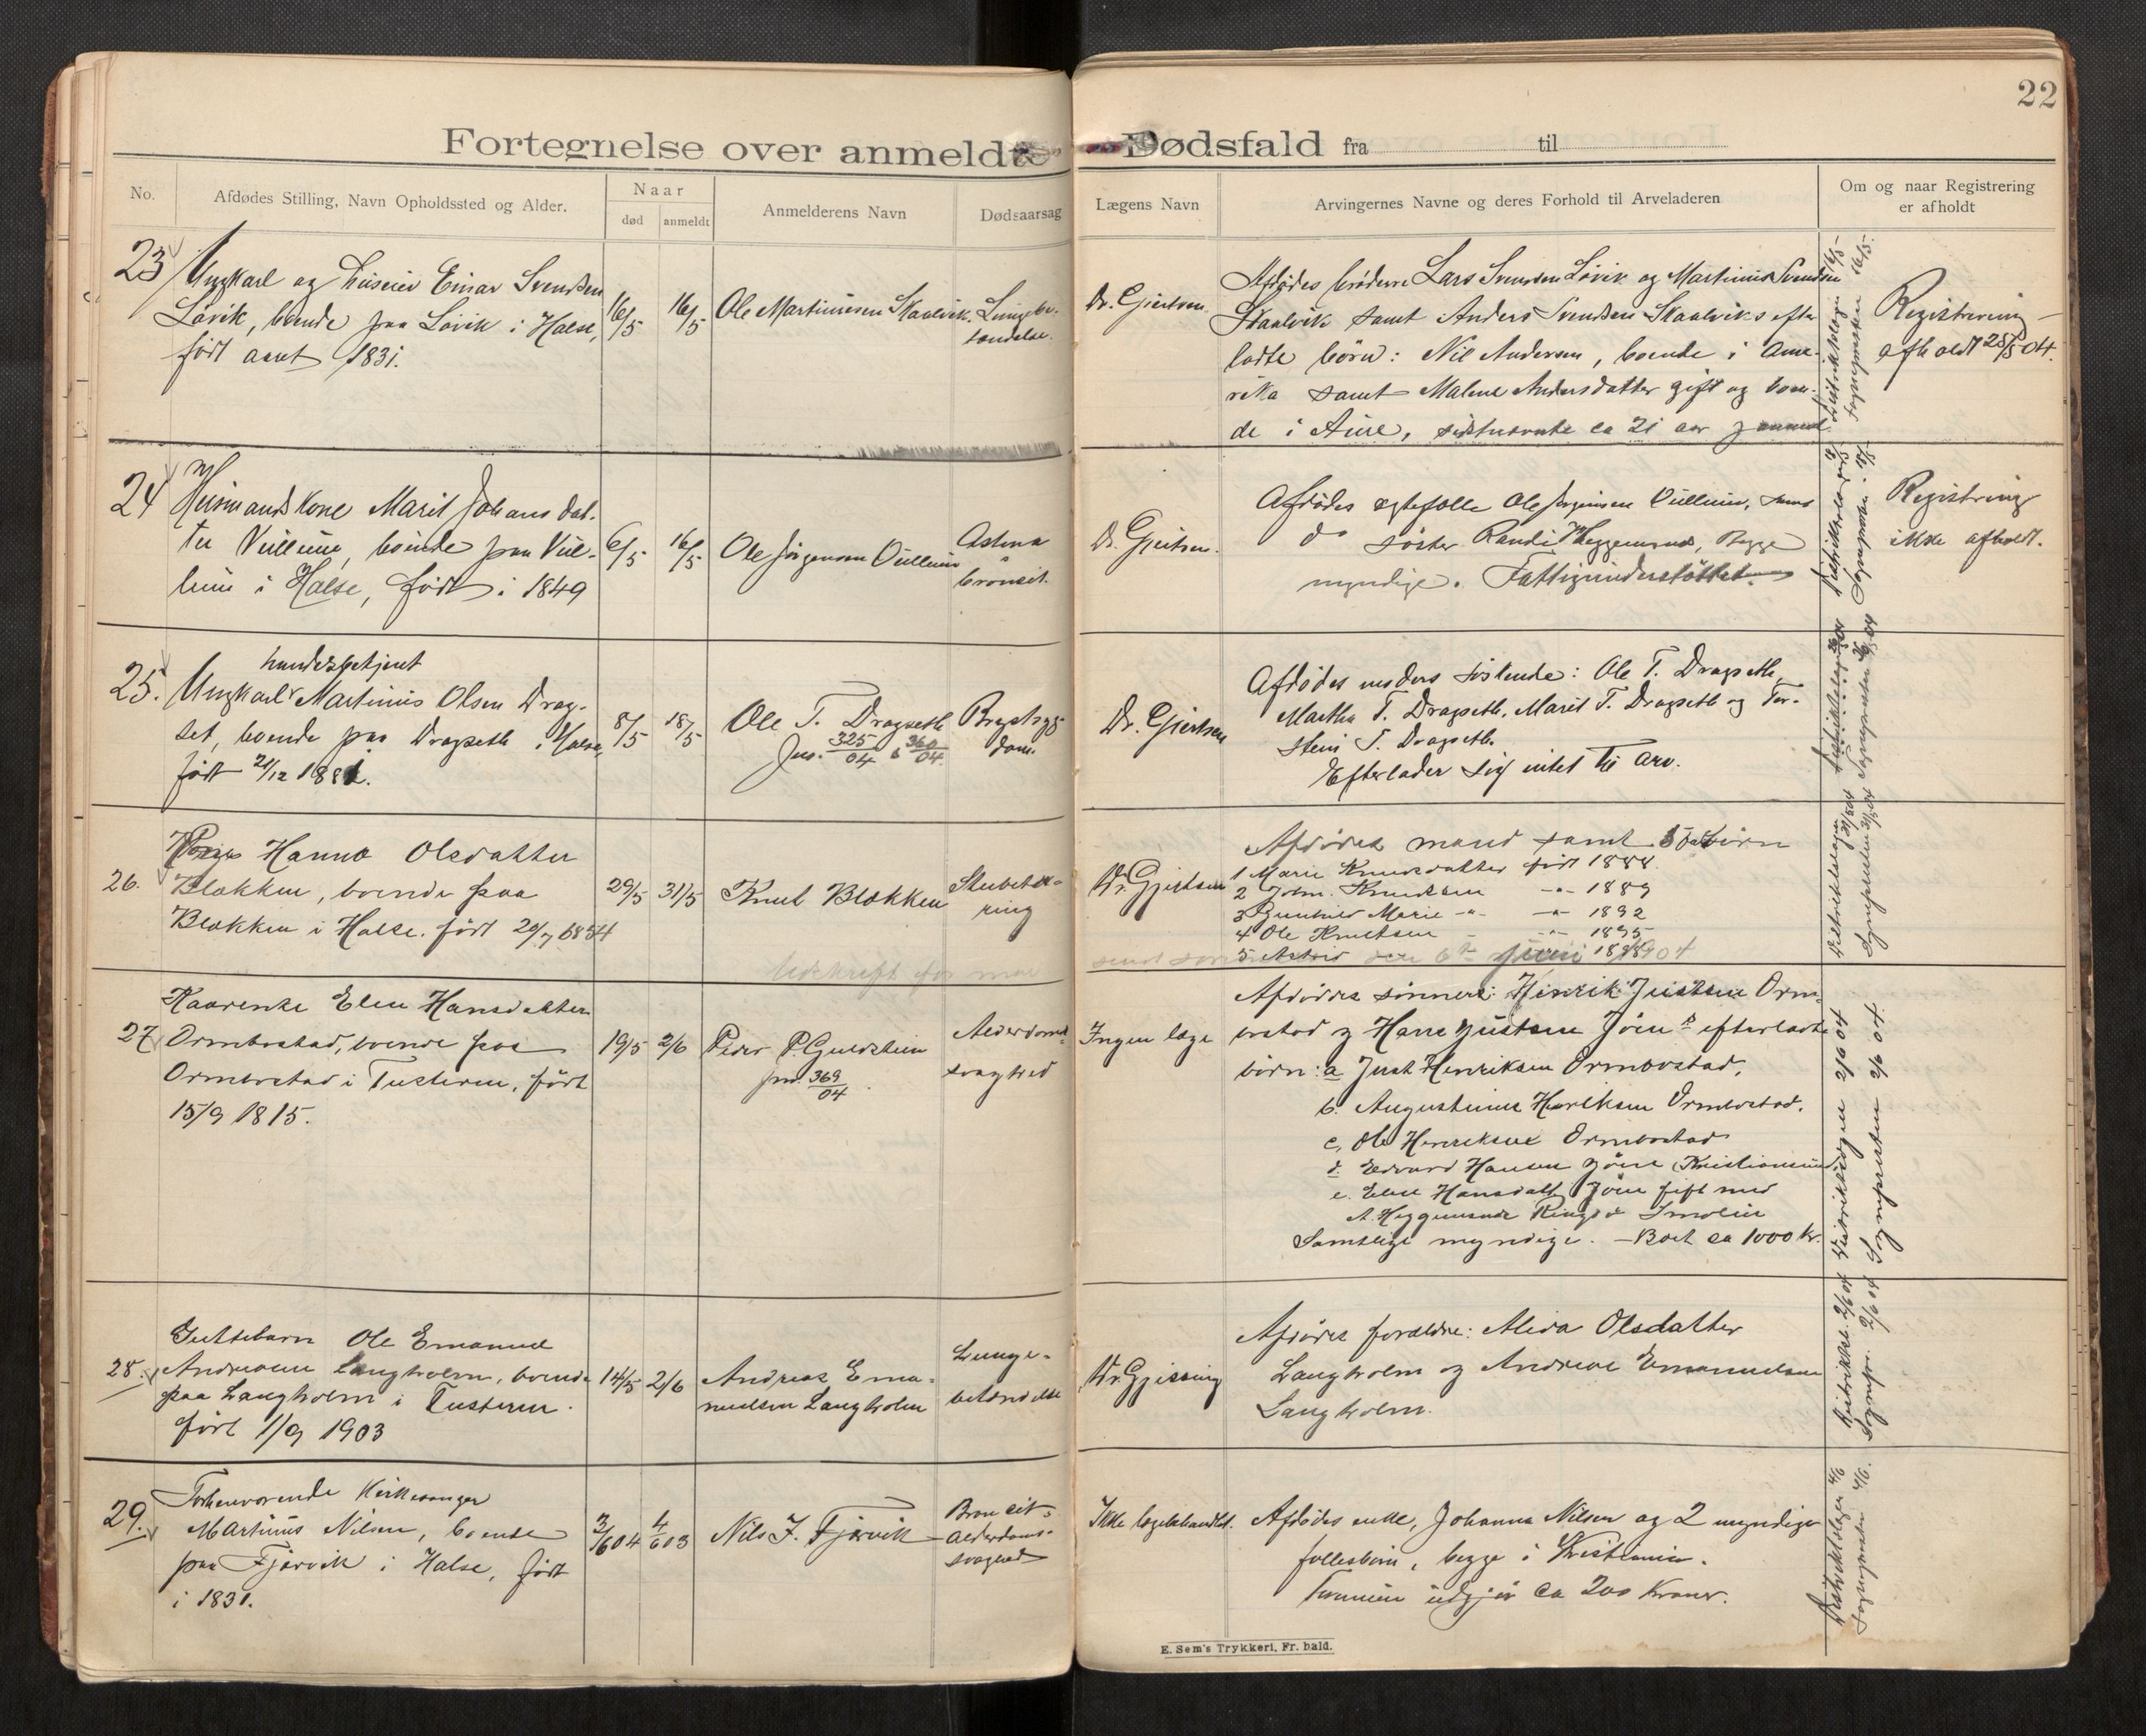 22
Fortegnelse over anmeldte Dødsfald fra til
No.
Afdødes Stilling, Navn Opholdssted og Alder.
Naar
død
anmeldt
Anmelderens Navn
Dødsaarsag
Lægens Navn
Arvingernes Navne og deres Forhold til Arveladeren
Om og naar Registrering
er afholdt
23
Ungkarl og Einar Svendsen
Løvik, boende paa Løvik i Halse,
født aaret 1831.
16/5
16/5
Ole Martinusen Skaalvik.
Lungebe-
tændelse.
Dr. Gjertsen.
Afdødes brødre Lars Svendsen Løvik og Martinus Svendsen
Skaalvik samt Anders Svendsen Skaalviks efter
ladte børn: Nil Andersen, boende i Ame-
rika samt Malene Andersdatter gift og boen-
de i Aure, sidstnævnte ca 21 aar gammel.
Distriktslægen 16/5
Sognepresten 16/5
Registrering
afholdt 25/5 04.
24
Husmandskone Marit Johansdat-
ter Vullum, boende paa Vul-
lum i Halse, født i 1849
6/5
16/5
Ole Jørgensen Vullum
Astma
bronsit.
Dr. Gjertsen.
Afdødes egtefælle Ole Jørgensen Vullum, samt
do søster Randi Heggemsnes, Begge
myndige. Fattigunderstøttet.
Registrering
ikke afholdt.
25.
handelsbetjent
Ungkarl Martinus Olsen Drag-
set, boende paa Dragseth i Halse,
født 21/12 1881.
8/5
18/5
Ole T. Dragseth
Jno. 325/04 & 360/04.
Brystsyg-
dom.
Dr. Gjertsen
Afdødes søskende: Ole T. Dragseth,
Martha T. Dragseth, Marit T. Dragseth og Tor-
stein T. Dragseth.
Efterlader sig intet til arv.
26.
Hanna Olsdatter
Blakken, boende paa
Blakken i Halse. født
29/5
31/5
Knut Blakken
Dr. Gjertsen
Afdødes mand samt 5 børn
1 Marie Knutsdatter født 1888.
2 John. Knudsen -"- 1889
3 Gunhild Marie -"- -"- 1892
4 Ole Knutsen - -"- 1895
5 Astrid
Distriktslægen 31/5 04
Sognepresten 31/5 04
Udskrift
27
Elen Hansdatter
Ormbostad, boende paa
Ormbostad i Tusteren, født
15/9 1815.
19/5
2/6
Peder P. Guldstein
Jno. 369/04.
Alderdoms-
svaghed
Ingen læge
Afdødes sønner: Henrik Justsen Orm-
bostad og Hans Justsen Jøens efterladte
børn: a Just Henriksen Ormbostad.
b. Augustinus Henriksen Ormbostad.
c, Ole Henriksen Ormbostad
d. Edvard Hansen Jøen Kristiansund.
e. Elen Hansdatter Jøen gift med
A. Heggemsnes Ringsø Smølen
Samtlige myndige. - Boet ca 1000 kr.
Distriktslægen 2/6 04
Sognepresten 2/6 04.
28.
Guttebarn Ole Emanuel
Andreasen Langholm, boende
paa Langholm i Tusteren.
født 1/9 1903
14/5
2/6
Andreas Ema-
nuelsen Langholm
Lunge-
betændelse
Dr. Gjessing
Afdødes forældre: Alida Olsdatter
Langholm og Andreas Emanuelsen
Langholm.
Distriktsl. 2/6 04
Sognepr. 2/6 04
29.
Forhenværende Kirkesanger
Martinus Nilsen, boende
paa Fjørvik i Halse, født
i 1831.
3/6 04
4/6 03
Nils J. Fjørvik
Bronsit-
alderdoms-
svaghed
Ikke lægebehandlet.
Afdødes enke, Johanna Nilsen og 2 myndige
fællesbørn, begge i Kristiania.
Formuen udgjør ca 200 Kroner.
Distriktslægen 4/6
Sognepresten 4/6.
E. Sem's Trykkeri, Fr. hald.